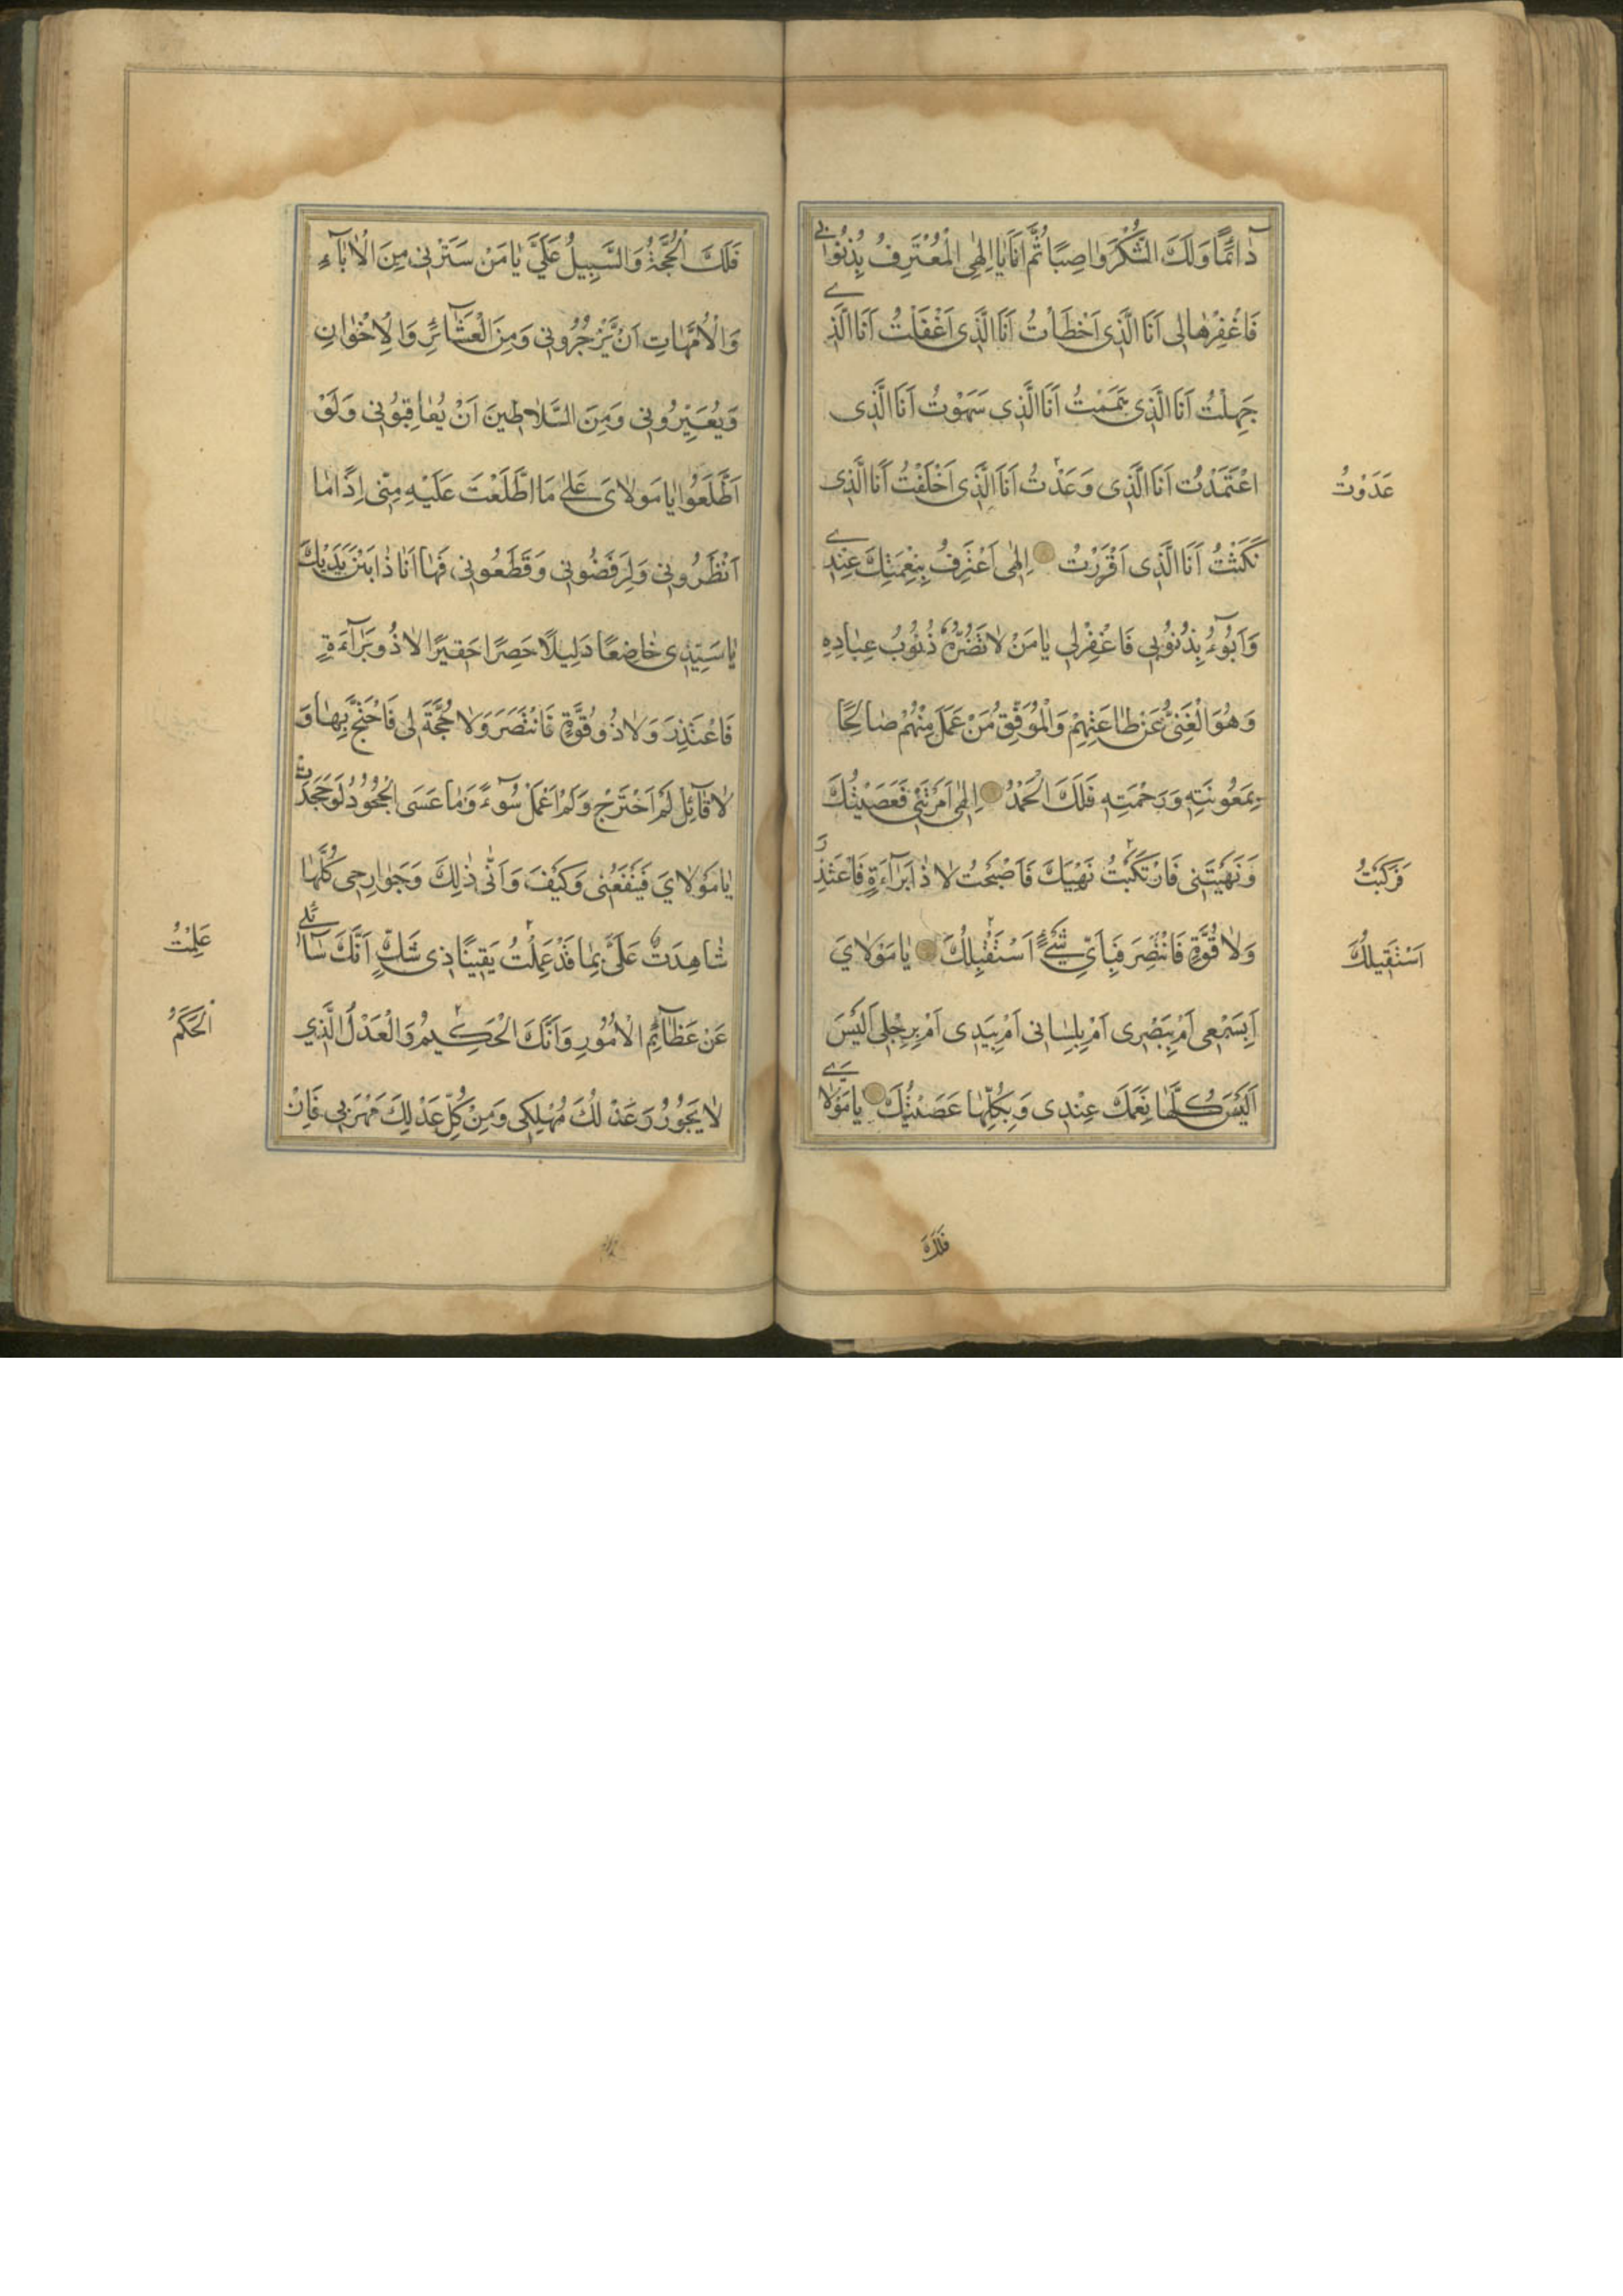 دٰائِمًا وَلَكَ الشُّكْرُ وٰاصِبًا ثُمَّ اَنَا يٰا اِلٰهِى الْمُعْتَرِفُ بِذُنُوبٰى
فَاغْفِرْهٰا لِى اَنَا الَّذِى اَخْطَأتُ اَنَا الَّذِى اَغْفَلْتُ اَنَا الَّذِى
جَهِلْتُ اَنَا الَّذِى هَمَمْتُ اَنَا الَّذِى سَهَوْتُ اَنَا الَّذِى
اعْتَمَدْتُ اَنَا الَّذِى وَعَدْتُ اَنَا الَّذِى اَخْلَفْتُ اَنَا الَّذِى
عَدَوْتُ
نَكَثْتُ اَنَا الَّذِى اَقْرَرْتُ اِلٰهِى اَعْتَرِفُ بِنِعْمَتِكَ عِنْدِى
وَاَبُوٓءُ بِذُنُوبِى فَاغْفِرْ لِى يٰا مَنْ لٰا تَضُرُّهُ ذُنُوبُ عِبٰادِهِ
وَهُوَ الْغَنِىُّ عَنْ طٰاعَتِهِمْ وَالْمُوَفِّقُ مَنْ عَمَلَ مِنْهُمْ صٰالِحًا
بِمَعُونَتِهِ وَرَحْمَتِهِ فَلَكَ الْحَمْدُ اِلٰهِى اَمَرْتَنِى فَعَصَيْتُكَ
وَنَهَيْتَنِى فَارْتَكَبْتُ نَهْيَكَ فَاَصْبَحْتُ لٰا ذٰا بَرٰآءَةٍ فَاَعْتَذِرَ
فَرَكِبْتُ
وَلٰا قُوَّةٍ فَانْتَصِرَ فَبِاَىِّ شَىْءٍ اَسْتَقْبِلُكَ يٰا مَوْلٰاىَ
اَسْتَقِيلُكَ
اَبِسَمْعِى اَمْ بِبَصَرِى اَمْ بِلِسٰانِى اَمْ بِيَدِى اَمْ بِرِجْلِى اَلَيْسَ
اَلَيْسَ كُلُّهٰا نِعَمَكَ عِنْدِى وَبِكُلِّهٰا عَصَيْتُكَ يٰا مَوْلٰاىَ
فَلَكَ
فَلَكَ الْحُجَّةُ وَالسَّبِيلُ عَلَىَّ يٰا مَنْ سَتَرَنِى مِنَ الْاٰبٰآءِ
وَالْاُمَّهٰاتِ اَنْ يَزْجُرُونِى وَمِنَ الْعَشٰٓائِرِ وَالْاِخْوٰانِ
وَيُعَيِّرُونِى وَمِنَ السَّلٰاطِينَ اَنْ يُعٰاقِبُونِى وَلَوْ
اَطَّلَعُوا يٰا مَوْلٰاىَ عَلٰى مَا اطَّلَعْتَ عَلَيْهِ مِنِّى اِذًا مٰا
اَنْظَرُونِى وَلَرَفَضُونِى وَقَطَعُونِى فَهٰا اَنَا ذٰا بَيْنَ يَدَيْكَ
يٰا سَيِّدِى خٰاضِعًا ذَلِيلًا حَصِرًا حَقِيرًا لٰا ذُو بَرٰآءَةٍ
فَاَعْتَذِرَ وَلٰا ذُو قُوَّةٍ فَانْتَصِرَ وَلٰا حُجَّةَ لِى فَاَحْتَجَّ بِهٰا وَ
لٰا قٰٓائِلٌ لَمْ اَجْتَرِحْ وَلَمْ اَعْمَلْ سُوٓءً وَمٰا عَسَى الْجُحُودُ لَوْ جَحَدْتُ
يٰا مَوْلٰاىَ فَيَنْفَعُنِى وَكَيْفَ وَاَنّٰى ذٰلِكَ وَجَوٰارِحِى كُلُّهٰا
شٰاهِدَةٌ عَلَىَّ بِمٰا قَدْ عَمِلْتُ يَقِينًا ذِى شَكٍّ اَنَّكَ سٰٓائِلِى
عَلِمْتُ
عَنْ عَظٰٓائِمِ الْاُمُورِ وَاَنَّكَ الْحَكِيمُ وَالْعَدْلُ الَّذِى
الْحَكَمُ
لٰا يَجُورُ وَعَدْلُكَ مُهْلِكِى وَمِنْ كُلِّ عَدْلِكَ مَهْرَبِى فَاِنْ